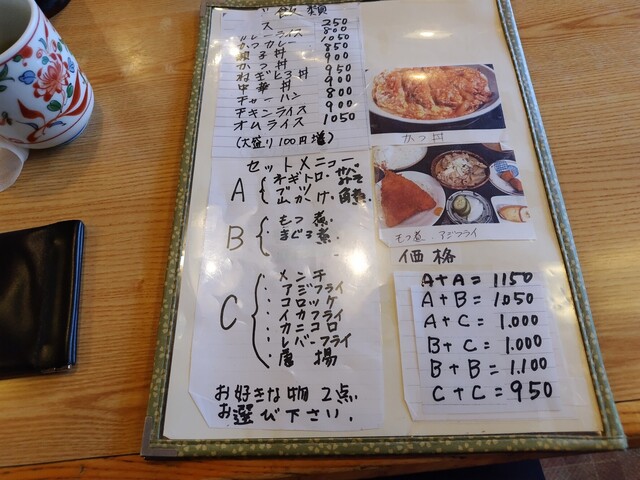 ご飯類
ス 250
カレーライス 800
かつカレー 1050
親子丼 850
かつ丼 900
玉丼 950
中華丼 900
チャーハン 800
チキンライス 900
オムライス 1050
(大盛り100円増)
セットメニュー
A
山かけ 角煮
B
もつ煮.
まぐろ煮.
C
メンチ
アジフライ
コロッケ
イカフライ
カニコロ
レバーフライ
唐揚
お好きな物 2点
お選び下さい.
かつ丼
もつ煮.アジフライ
価格
A+A=1150
A+B=1.050
A+C=1.000
B+C=1.000
B+B=1.100
C+C=950